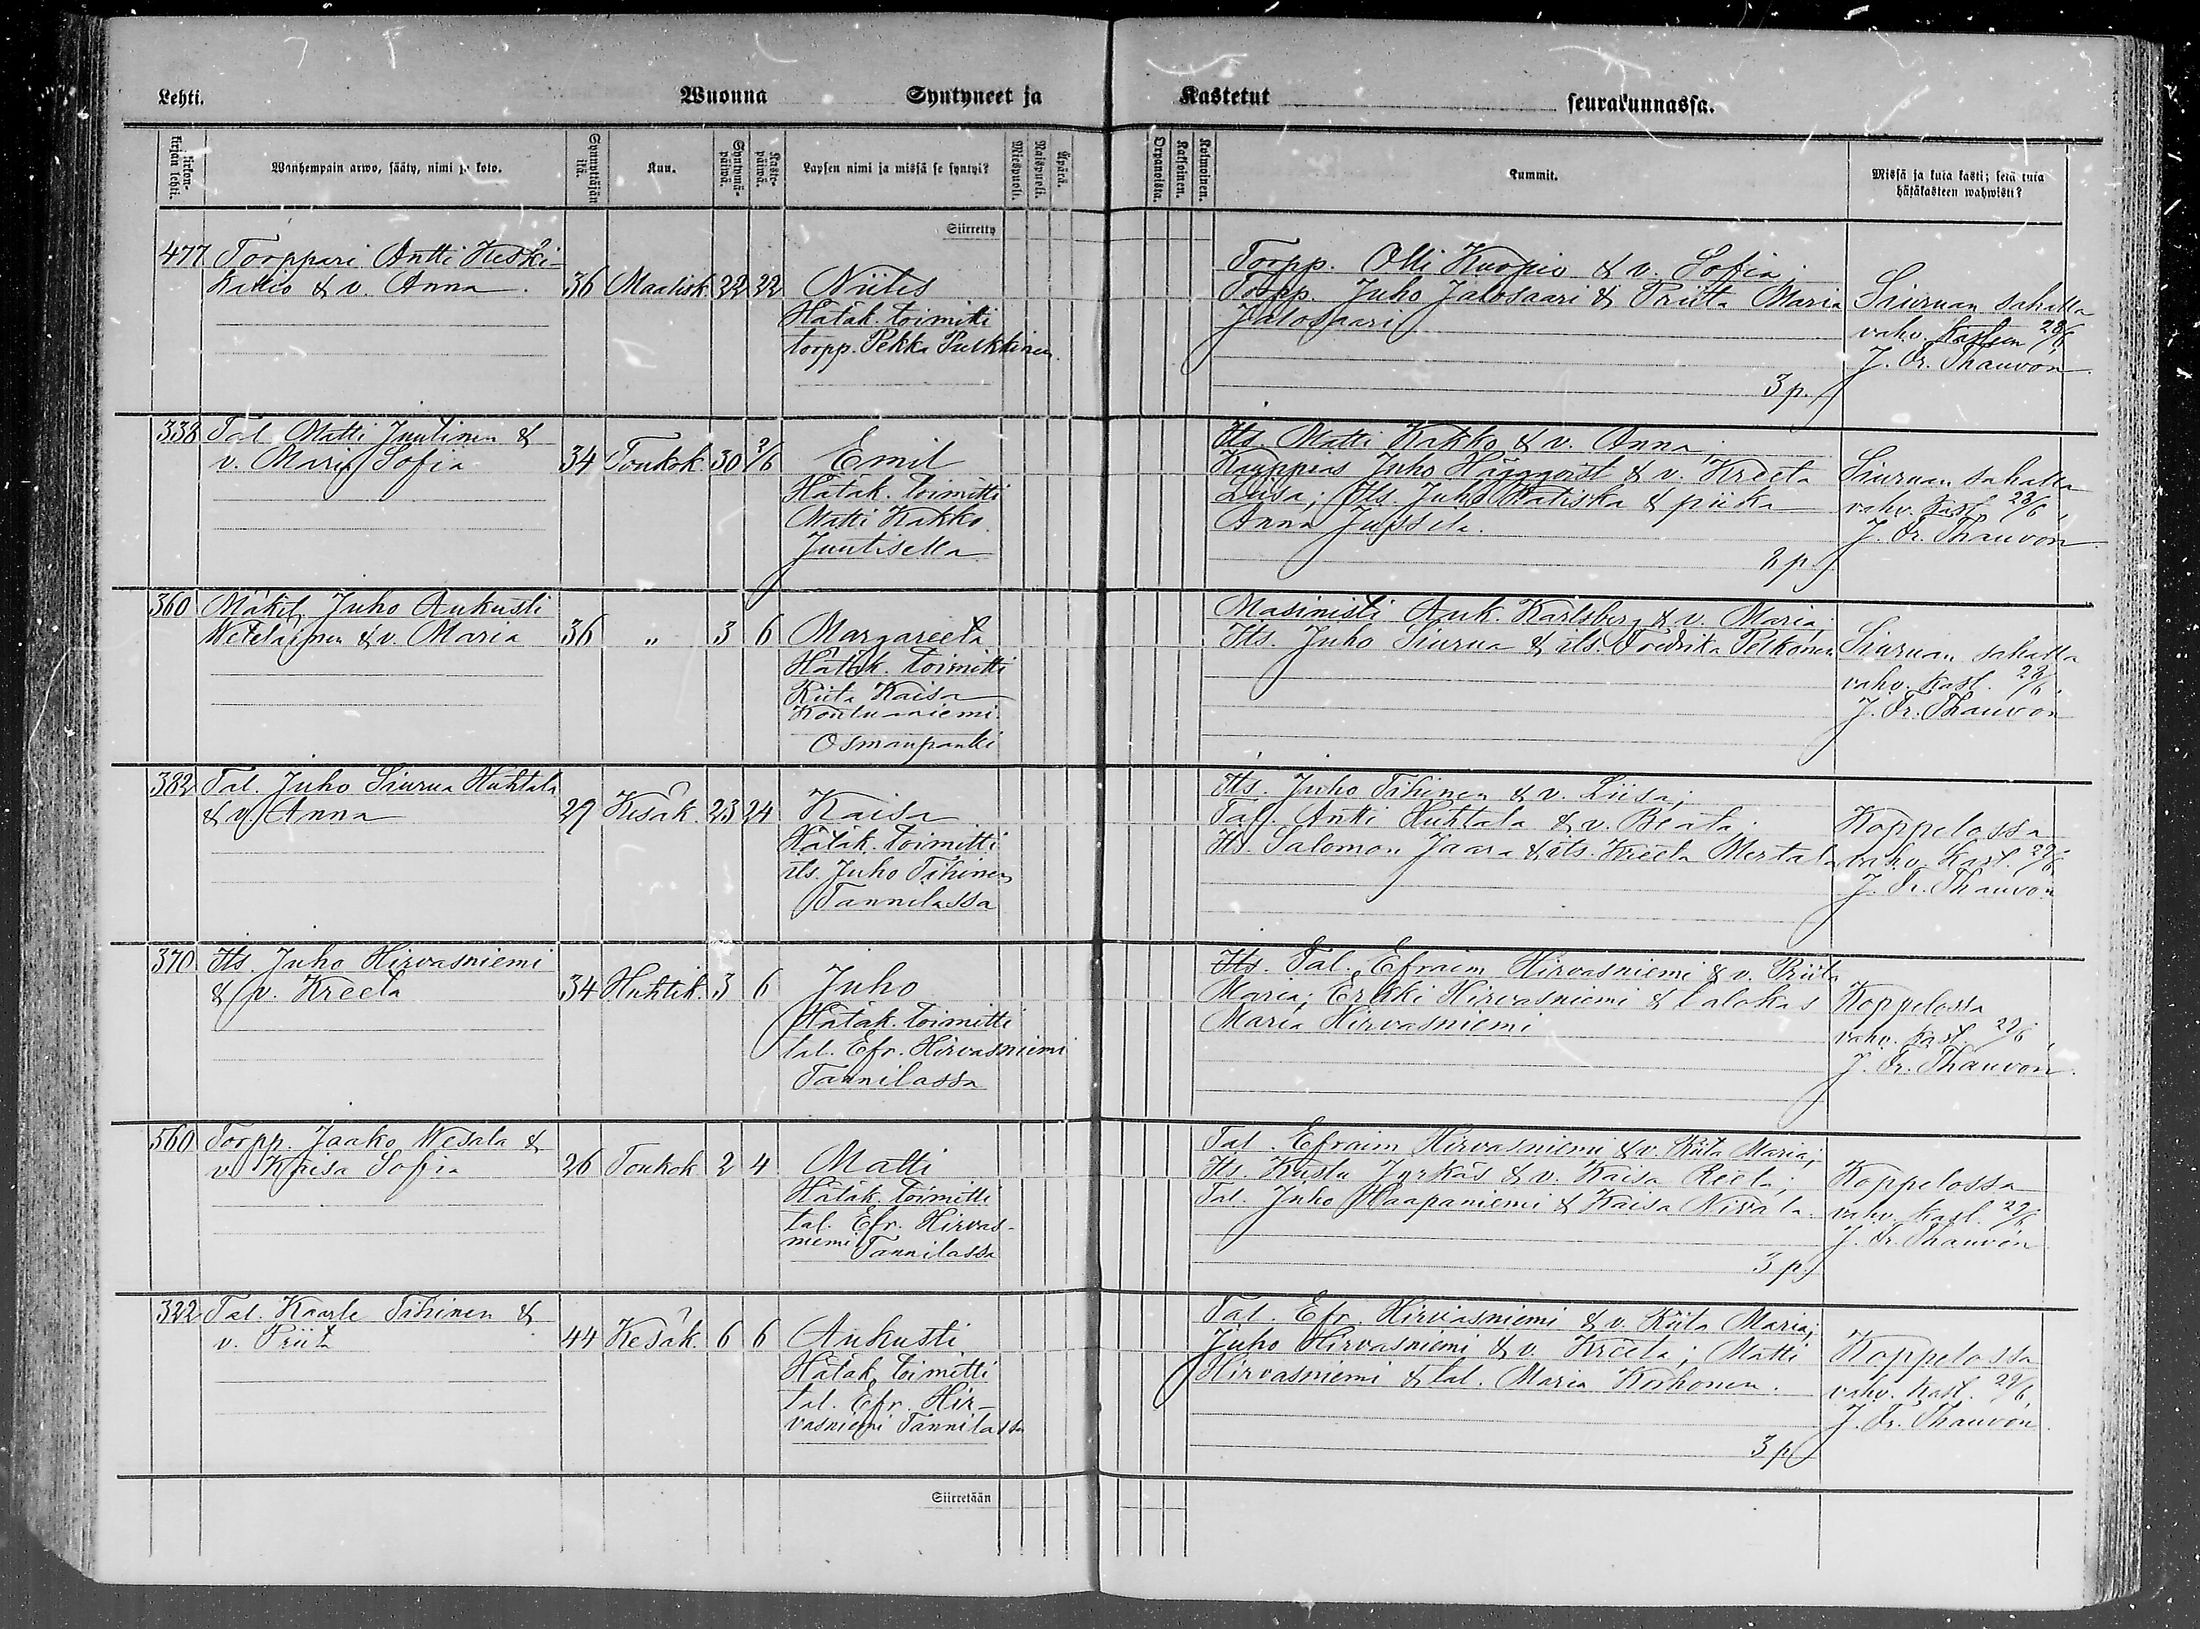 Lehti.
Wuonna Syntyneet ja
Kastetut seurakunnassa.
Kirkon-kirjan lehti.
Wanhempain arwo, sääty, nimi ja koto.
Synnyttäjän ikä.
Kuu.
Syntymä-päiwä.
Kaste-päiwä.
Lapsen nimi ja missä se syntyi?
Miespuoli.
Naispuoli.
Äpärä.
Orpanoista.
Kaksoinen.
Kolmoinen.
Kummit.
Missä ja kuka kasti; sekä kuka hätäkasteen wahwisti?
Siirretty
477 Torppari Antti Keski-
Kittio & v. Anna. 36 Maalisk. 22 22 Niilis
Hätäk. toimitti
torpp. Pekka Purkkinen
Torpp. Olli Kuopio & v. Sofia;
Torpp. Juho Jalosaari & Priita Maria
Jalosaari
3 p.
Siuruan sahalla
vahv. kasteen 28/6
J. Fr. Thauvon.
338 Tal. Matti Juutinen &
v. Maria Sofia 34 Toukok. 30 2/6 Emil
Hätäk. toimitti
Matti Kakko
Juutisella
Its. Matti Kakko & v. Anna;
Kauppias Juho Häggqvist & v. Kreeta
Liisa; Its. Juho Ratiska & piika
Anna Jussila.
2 p.
Siuruan sahalla
vahv. kast. 28/6,
J. Fr. Thauvon.
360 Mäkit. Juho Aukusti
Weteläinen & v. Maria 36 „ 3 6 Margareeta
Hätäk. toimitti
Riita Kaisa
Kontuaniemi
Osmanpankki
Masinisti Auk. Karlsberg & v. Maria;
Its. Juho Siurua & its. Fredrika Pelkonen
Siuruan sahalla
vahv. kast. 28/6,
J. Fr. Thauvon
382 Tal. Juho Siurua Huhtala
& v. Anna 29 Kesäk. 23 24 Kaisa
Hätäk. toimitti
its. Juho Tihinen
Tannilassa
Its. Juho Tihinen & v. Liisa;
Tal. Antti Huhtala & v. Beata;
Its. Salomon Jaara & its. Kreeta Mertala
Koppelossa
vahv. kast. 29/6
J. Fr. Thauvon
370 Its. Juho Hirvasniemi
& v. Kreeta 34 Huhtik. 3 6 Juho
Hätäk. toimitti
tal. Efr. Hirvasniemi
Tannilassa
Its. Tal. Efraim Hirvasniemi & v. Priita
Maria; Erkki Hirvasniemi & talokas
Maria Hirvasniemi
Koppelossa
vahv. kast. 29/6,
J. Fr. Thauvon.
560 Torpp. Jaako Wesala &
v. Kaisa Sofia 26 Toukok. 2 4 Matti
Hätäk. toimitti
tal. Efr. Hirvas-
niemi Tannilassa
Tal. Efraim Hirvasniemi & v. Riita Maria;
Its. Kustu Jurkäs & v. Kaisa Reeta;
Tal. Juho Haapaniemi & Kaisa Nivala.
3 p.
Koppelossa
vahv. kast. 29/6
J. Fr. Thauvon
322 Tal. Kaarle Tihinen &
v. Priita 44 Kesäk. 6 6 Aukusti
Hätäk. toimitti
tal. Efr. Hir-
vasniemi Tannilassa
Tal. Efr. Hirvasniemi & v. Riita Maria;
Juho Hirvasniemi & v. Kreeta; Matti
Hirvasniemi & tal. Maria Korhonen.
3 p.
Koppelossa
vahv. kast. 29/6,
J. Fr. Thauvon.
Siirretään